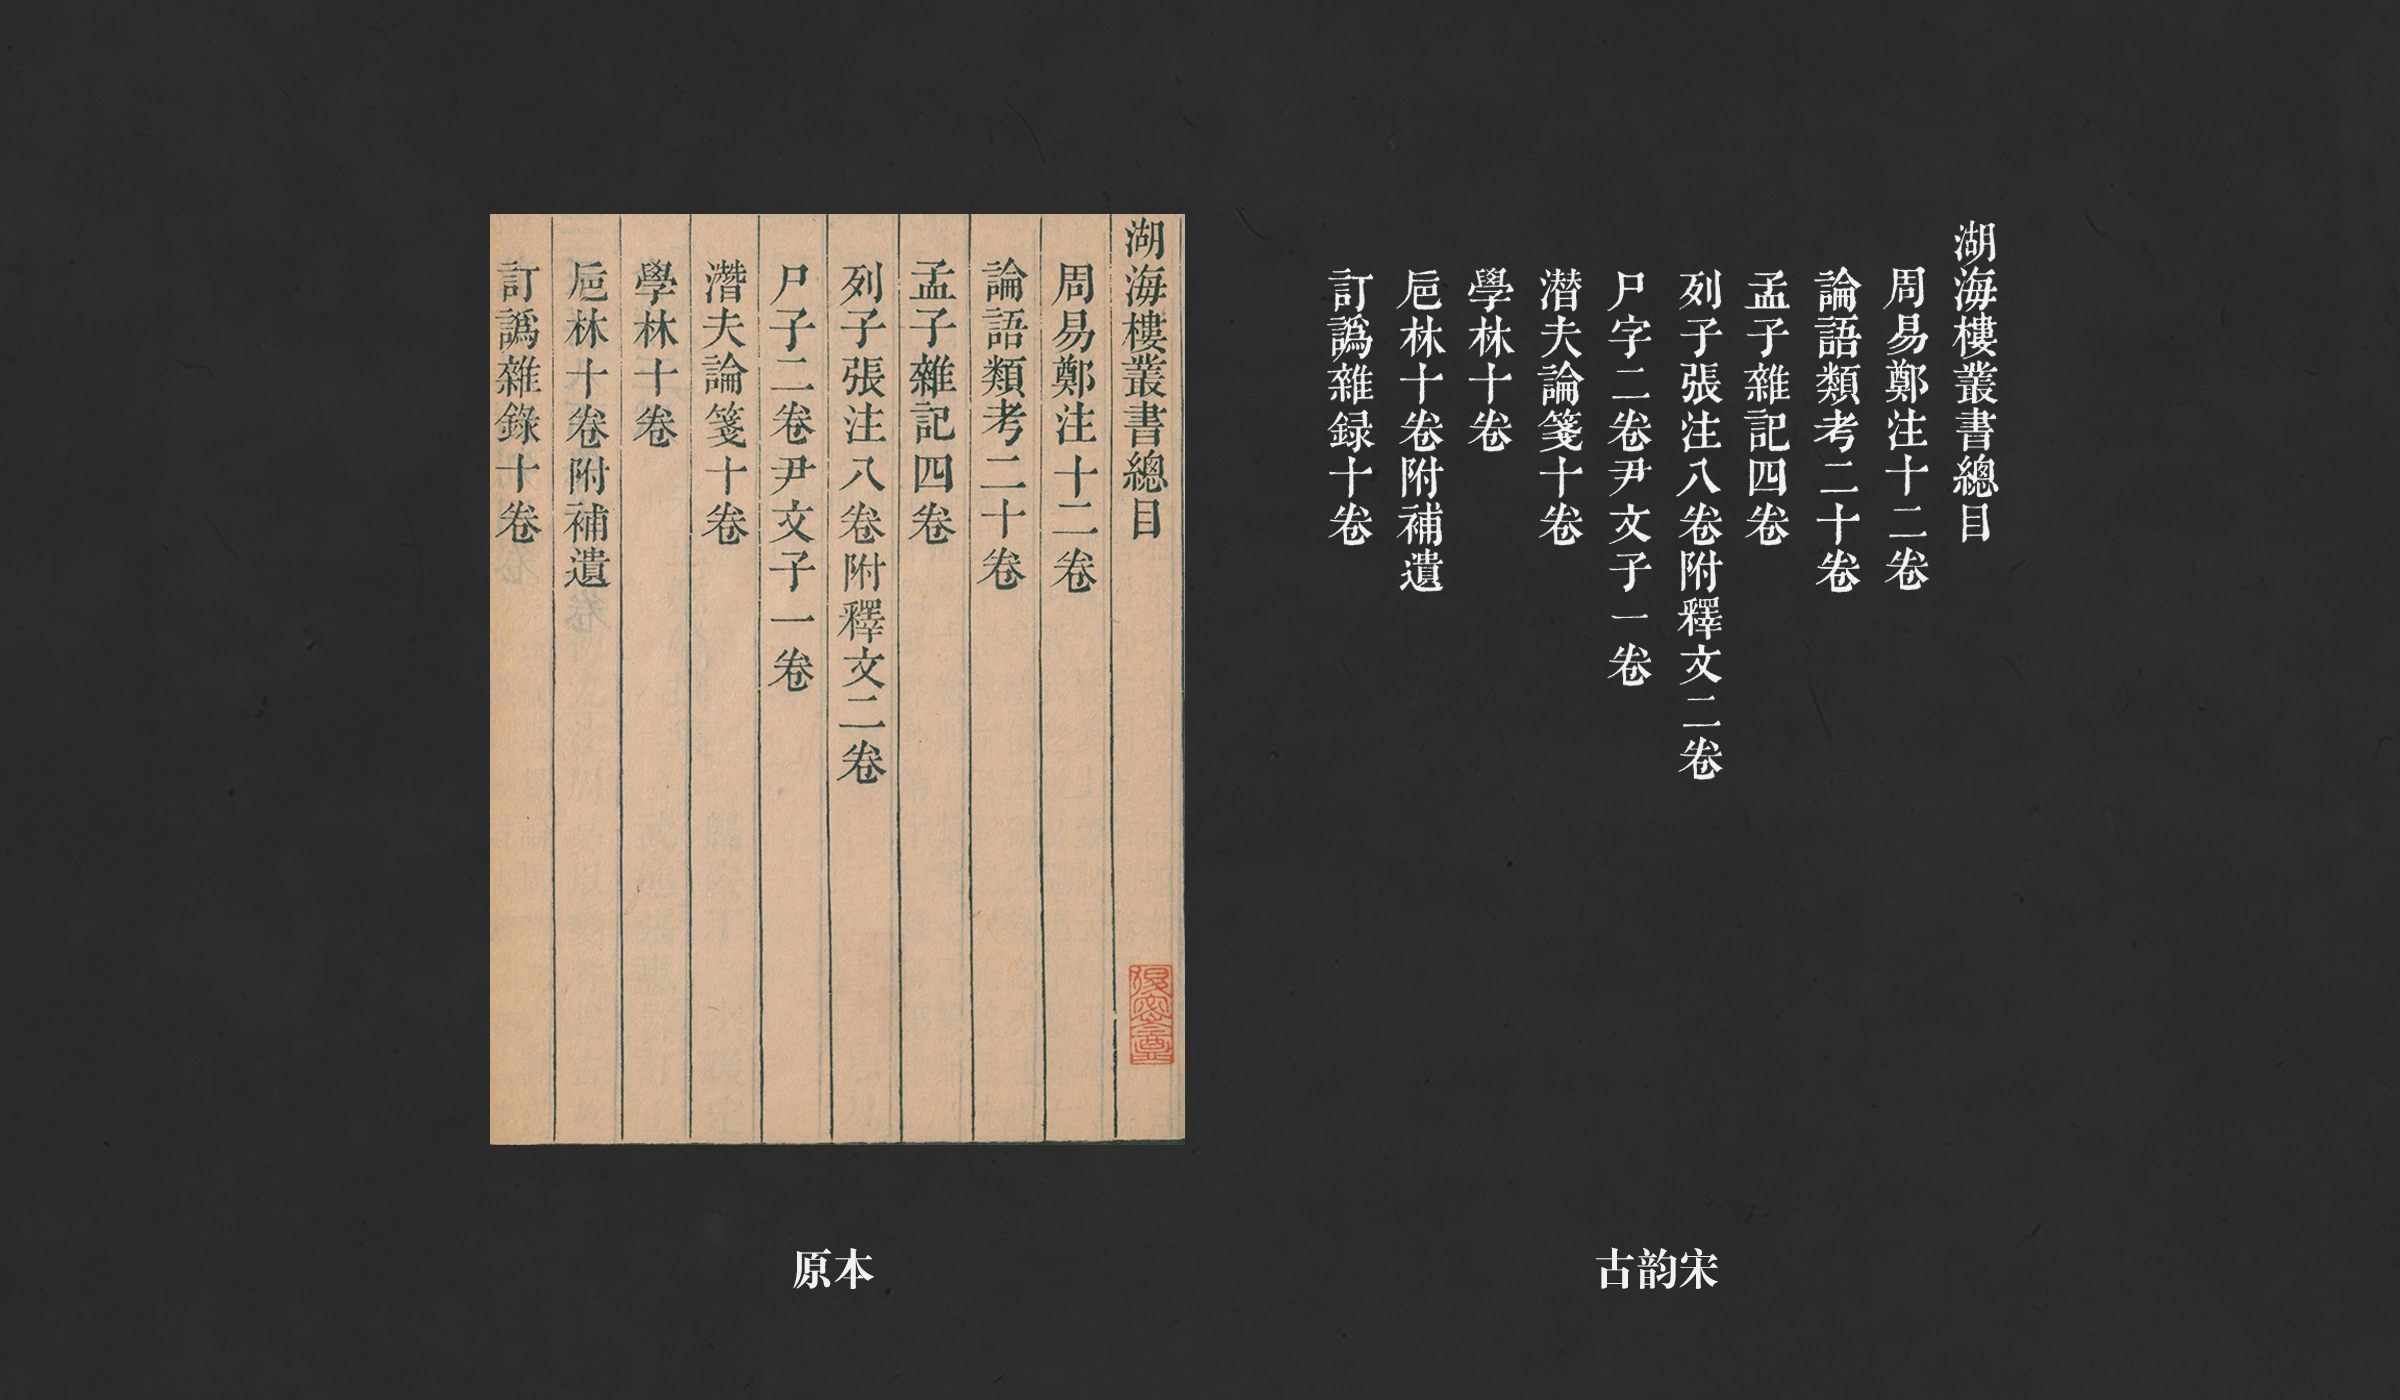 湖海樓叢書總目
周易鄭注十二卷
論語類考二十卷
孟子雜記四卷
列子張注八卷附釋文二卷
尸子二卷尹文子一卷
潛夫論箋十卷
學林十卷
巵林十卷附補遺
訂譌雜錄十卷
原本
湖海樓叢書總目
周易鄭注十二卷
論語類考二十卷
孟子雜記四卷
列子張注八卷附釋文二卷
尸字二卷尹文子一卷
潛夫論箋十卷
學林十卷
巵林十卷附補遺
訂譌雜録十卷
古韵宋